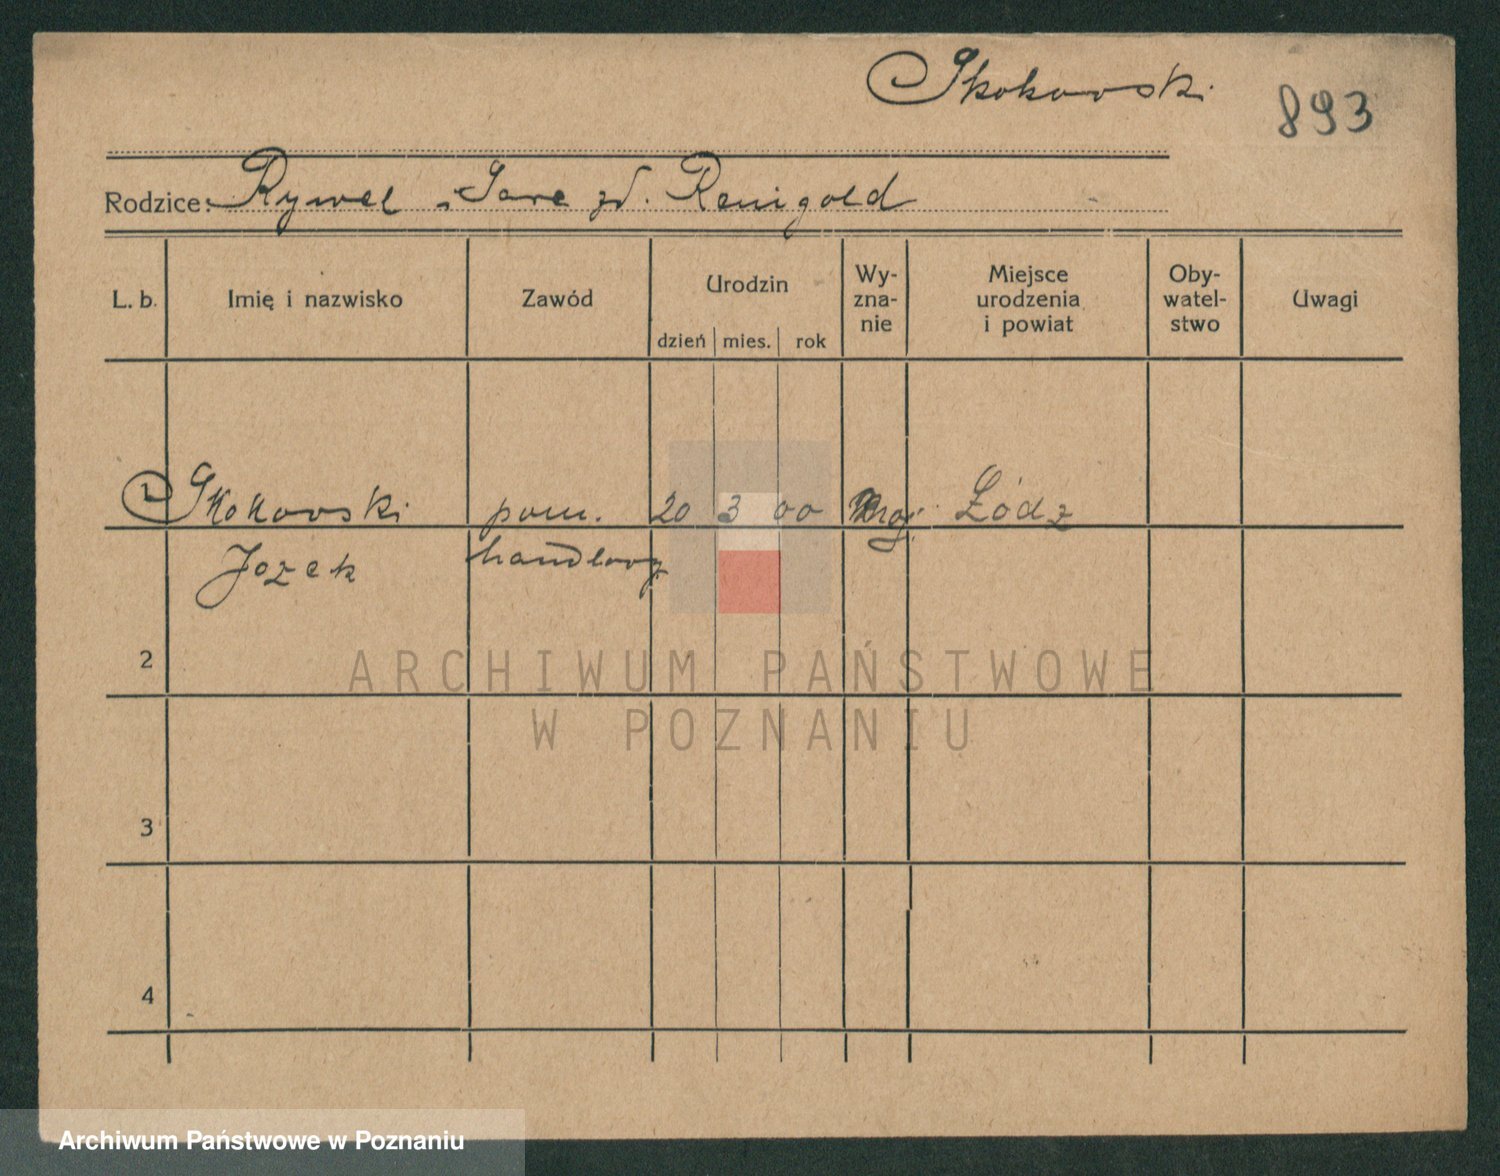 Skokowski
893
Rodzice: Rywel, Sara zd. Renigold
L. b. Imię i nazwisko Zawód Urodzin dzień mies. rok Wy-zna-nie Miejsce urodzenia i powiat Oby-watel-stwo Uwagi
1 Skokowski pom. 20 3 00 Łódz
Jozek handlowy
2
ARCHIWUM PAŃSTWOWE
W POZNANIU
3
4
Archiwum Państwowe w Poznaniu